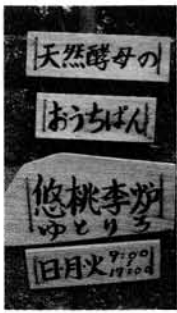 天然酵母の
おうちぱん
悠桃李炉
ゆとりろ
日月火 9:00
17:00